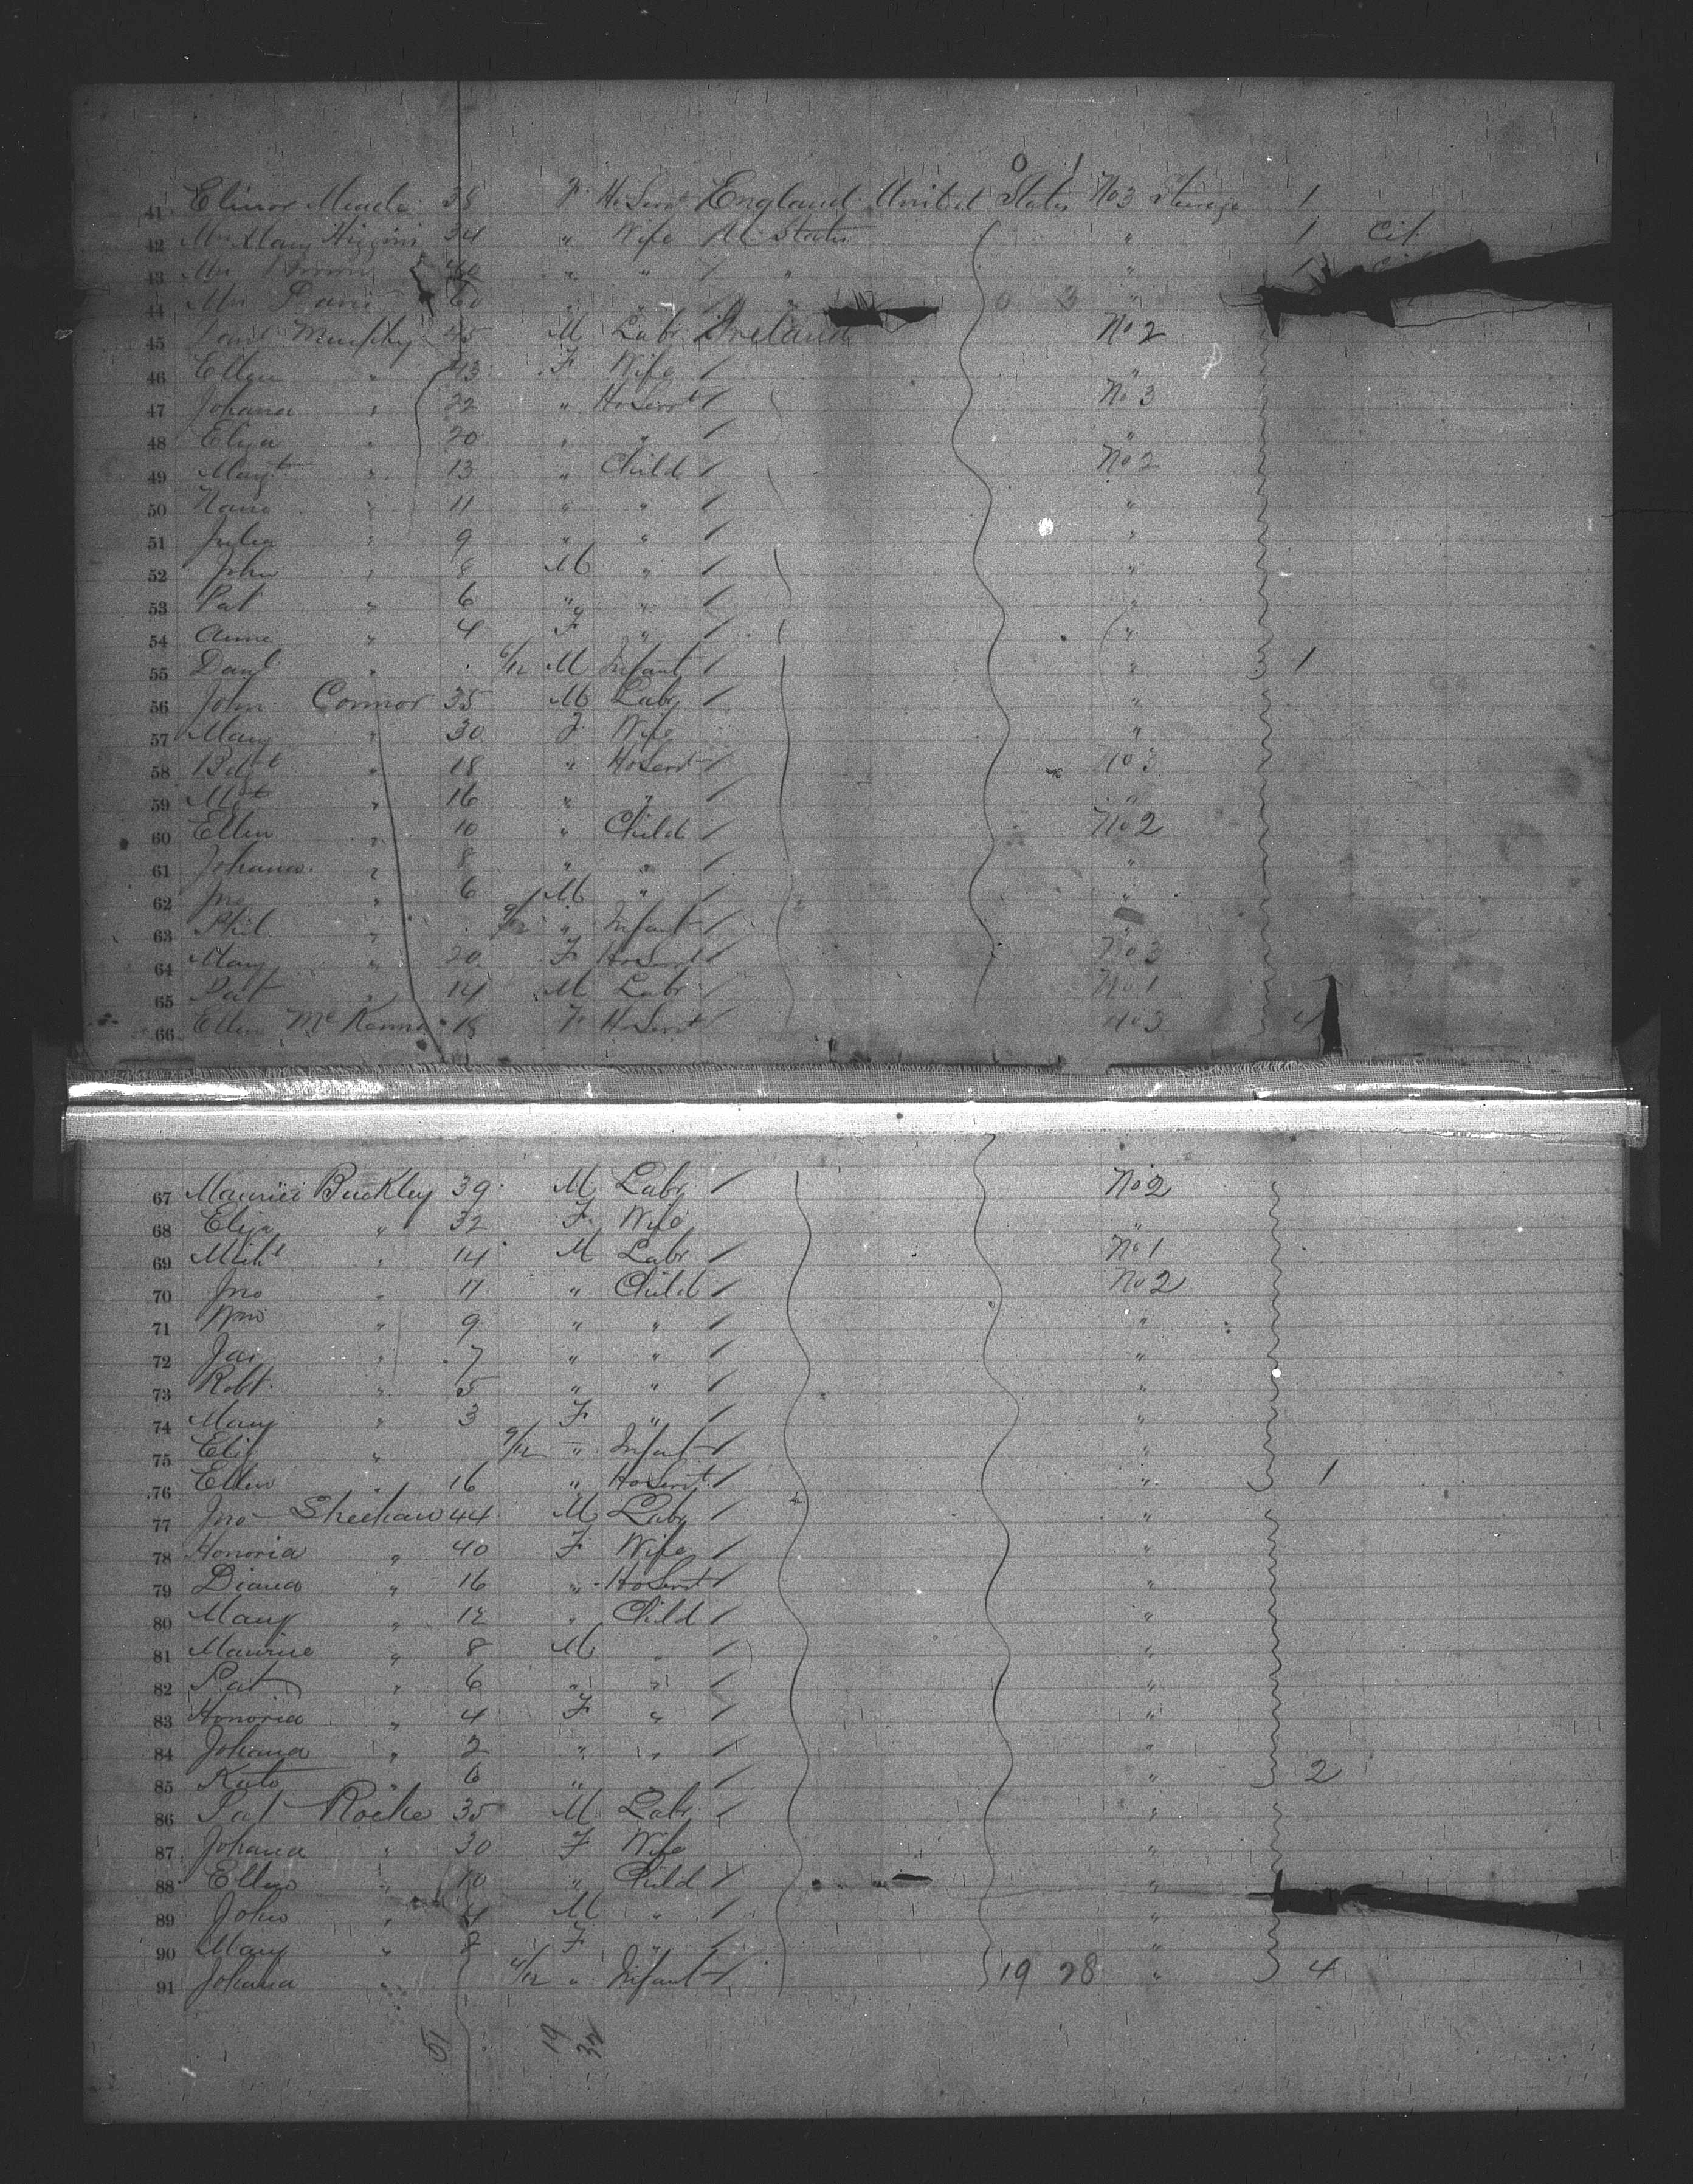 0 1
41 Elinor Meade 38 F. Ho Servt England United States No 3 Steerage 1
42 Mrs Mary Higgins 34 " Wife U States " 1 Cit
43 Mrs Brown 40 " " / " " 1
44 Mrs Davis 60 " " / " 0 3 "
45 Danl Murphy 45 M Labr Ireland No 2
46 Ellen " 43 F Wife / "
47 Johana " 22 " Ho Servt / No 3
48 Eliza " 20 " " / "
49 Margt " 13 " Child / No 2
50 Nano " 11 " " / "
51 Julia " 9 " " / "
52 John " 8 M " / "
53 Pat " 6 " " / "
54 Anne " 4 F " / "
55 Danl " 6/12 M Infant / " 1
56 John Connor 35 M Labr / "
57 Mary " 30 F Wife "
58 Bdgt " 18 " Ho Servt / No 3
59 Mgt " 16 " " / "
60 Ellen " 10 " Child / No 2
61 Johana " 8 " " / "
62 Jno " 6 M " / "
63 Phil " 9/12 " Infant / "
64 Mary " 20 F Ho Servt / No 3
65 Pat " 14 M Labr / No 1
66 Ellen McKenna 18 F Ho Servt / No 3 4
67 Maurice Buckley 39 M Labr / No 2
68 Eliza " 32 F. Wife "
69 Michl " 14 M Labr / No 1
70 Jno " 11 " Child / No 2
71 Wm " 9 " " / "
72 Jas " 7 " " / "
73 Robt " 5 " " / "
74 Mary " 3 F " / "
75 Eliz " 9/12 " Infant / "
76 Ellen " 16 " Ho Servt / " 1
77 Jno Sheehan 44 M Labr / "
78 Honoria " 40 F Wife / "
79 Diana " 16 " Ho Servt / "
80 Mary " 12 " Child / "
81 Maurice " 8 M " / "
82 Pat " 6 " " / "
83 Honoria " 4 F " / "
84 Johana " 2 " " / "
85 Kate " 6 " / " 2
86 Pat Roche 35 M Labr / "
87 Johana " 30 F Wife "
88 Ellen " 10 " Child / "
89 John " 4 M " / "
90 Mary " 2 F " / "
91 Johana " 4/12 " Infant / 19 28 " 4
51 19 32